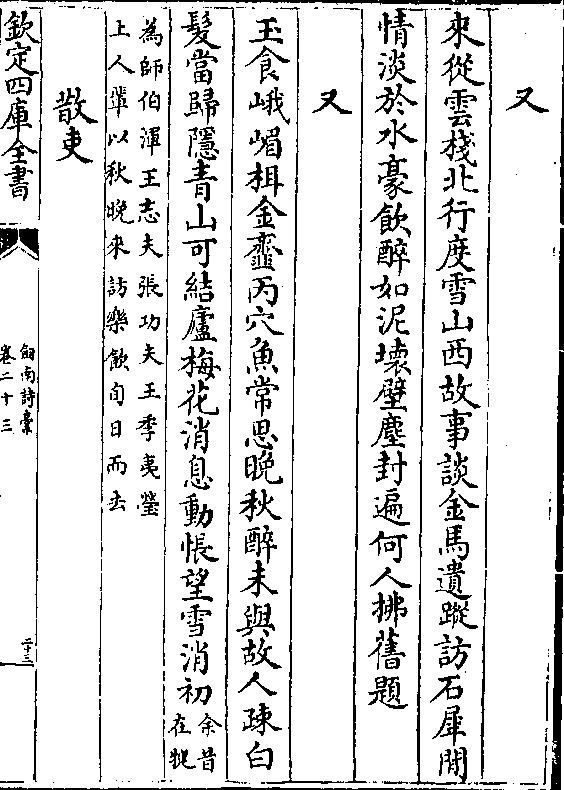 又
來從雲棧北行度雪山西故事談金馬遺蹤訪石犀閒
情淡於水豪飲醉如泥壊壁塵封遍何人拂舊題
又
玉食峨嵋栮金虀丙穴魚常思晚秋醉未與故人疎白
髮當歸隱青山可結廬梅花消息動悵望雪消初余昔
在犍
為師伯渾王志夫張功夫王季夷瑩
上人輩以秋晚來訪樂飲旬日而去
散吏
欽定四庫全書
劍南詩稾
卷二十三
二十三